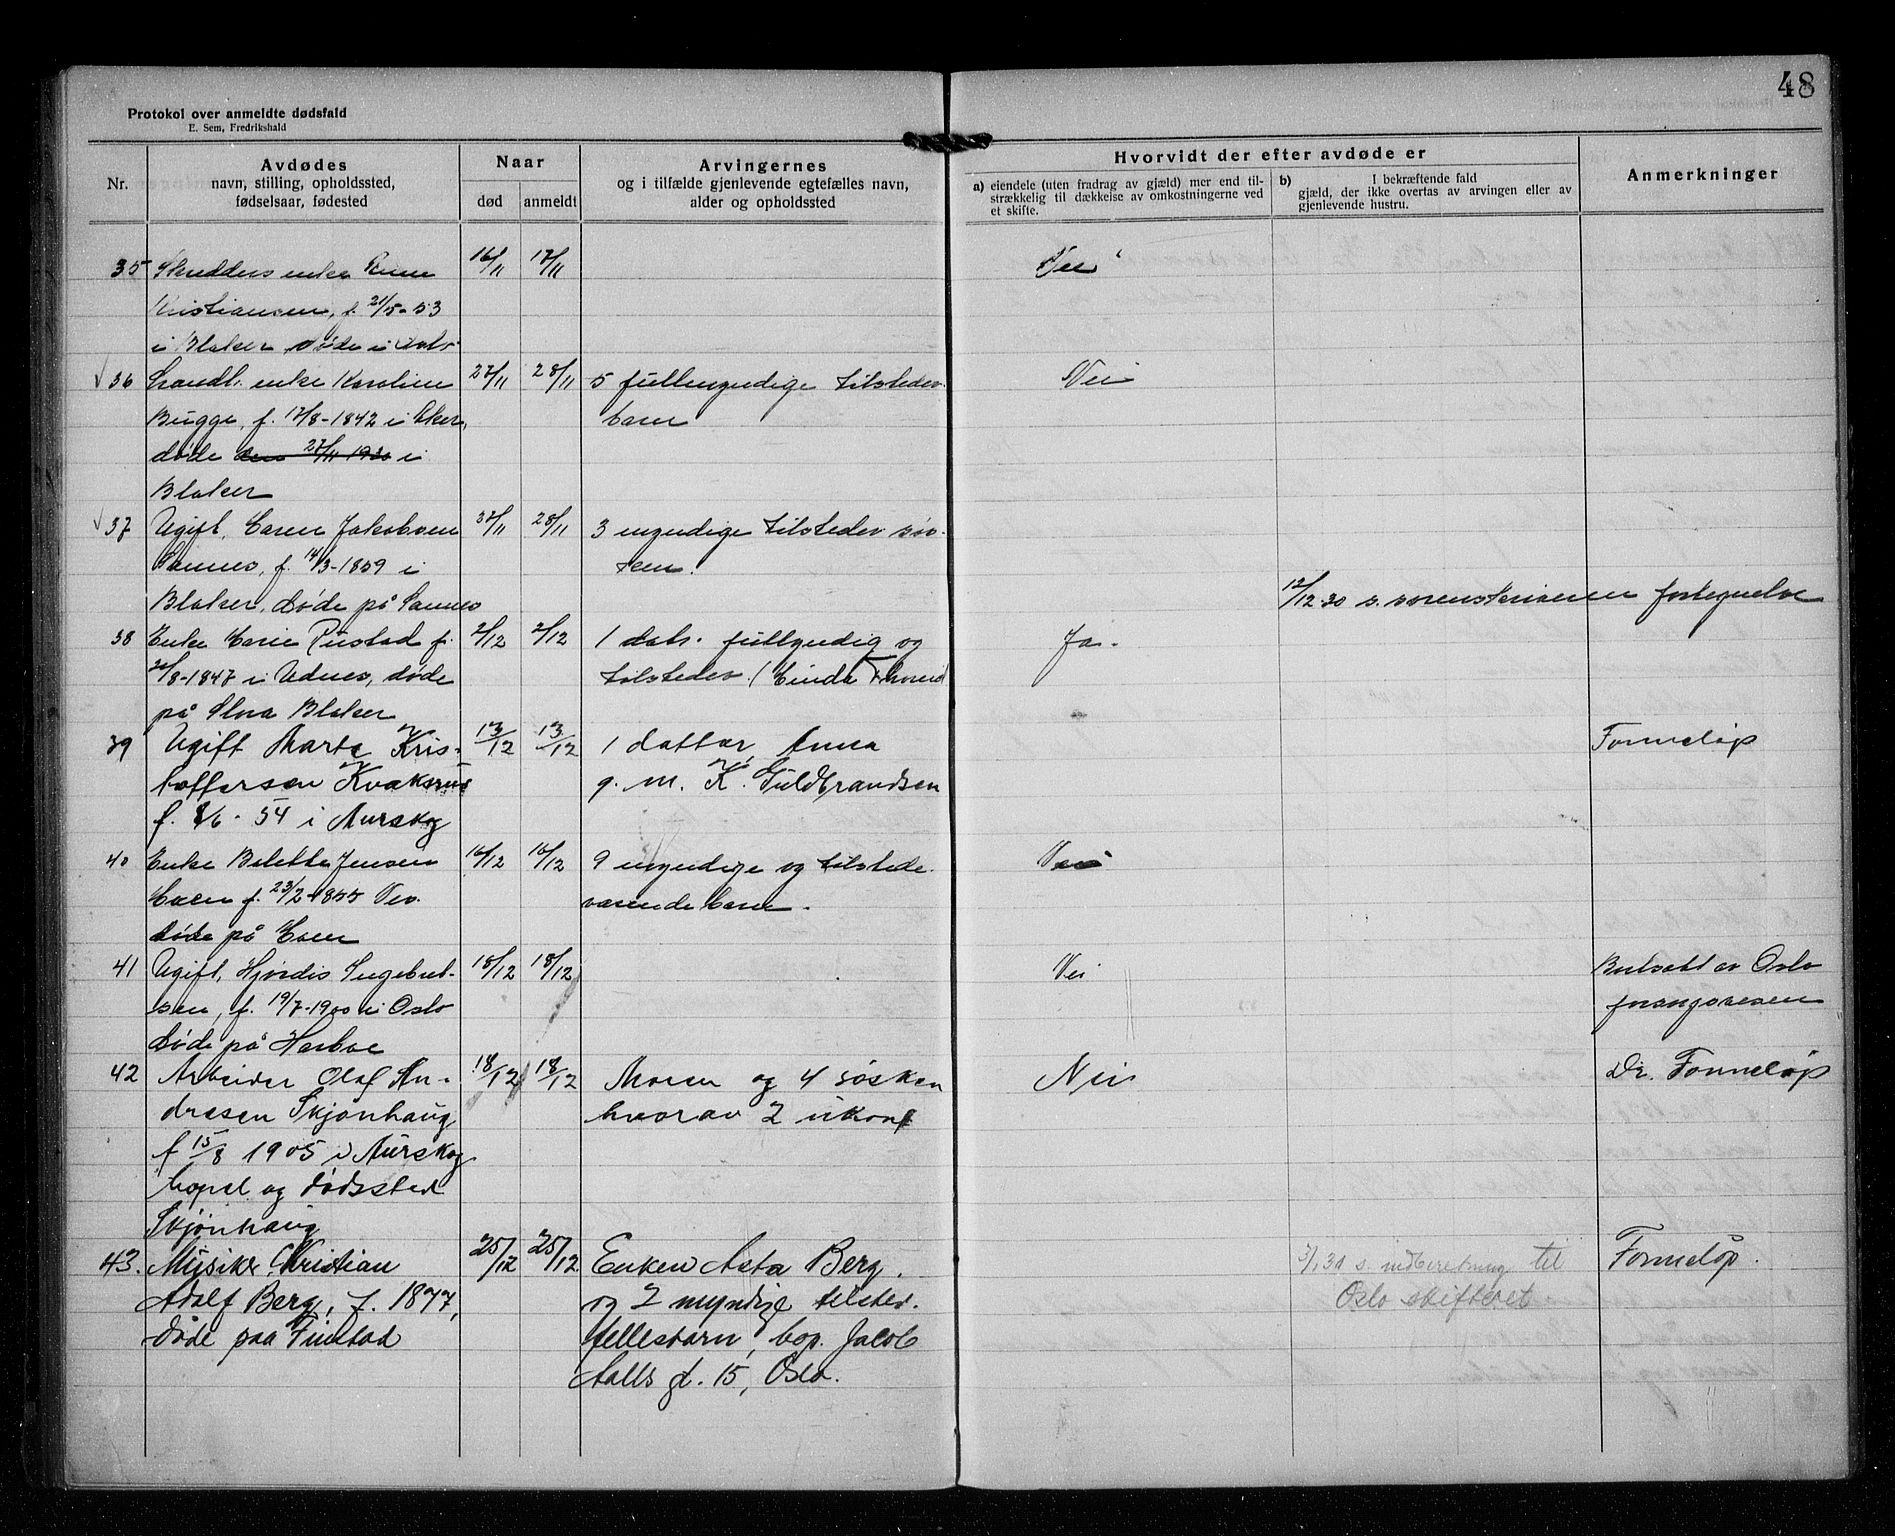 48
Protokol over anmeldte dødsfald
E. Sem, Fredrikshald
Nr.
Avdødes
navn, stilling, opholdssted,
fødselsaar, fødested
Naar
død
anmeldt
Arvingernes
og i tilfælde gjenlevende egtefælles navn,
alder og opholdssted
Hvorvidt der efter avdøde er
a) eiendele (uten fradrag av gjæld) mer end til-
strækkelig til dækkelse av omkostningerne ved
et skifte.
b) I bekræftende fald
gjæld, der ikke overtas av arvingen eller av
gjenlevende hustru.
Anmerkninger
35 Skredders enke
Kristiansen, f. 21/5-53
i Blaker, døde i
16/11 17/11
Nei
36 enke Karoline
Bugge, f. 17/8-1842 i Aker,
døde den 27/11 1930 i
Blaker
27/11 28/11
5 fullmyndige tilstedev.
barn
Nei
37 Ugift, Karen Jakobsen
Sannes, f. 14/3-1859 i
Blaker, døde på Sannes
27/11 28/11
3 myndige tilstedev. søs-
ken.
12/12 30 s. sorenskriveren fortegnelse
38 Enke Marie Rustad f.
/8-1847 i Udnes, døde
på Stora Blaker
2/12 2/12
1 datr. fullmyndig og
tilstedev.
Ja.
39 Ugift Marte Kris-
toffersen Kvaksrud
f. 8/6-54 i Aurskog
13/12 13/12
1 datter, Anna
g. m. K. Guldbrandsen
Fonneløp
40 Enke Bolette Jensen
Moen f. 23/2-1855
døde på Moen
16/12 16/12
9 myndige og tilstede-
værende barn.
Nei
41 Ugift, Hjørdis Ingebret-
sen, f. 19/7-1900 i Oslo
døde på
18/12 18/12
Nei
Bortsatt av Oslo
forsorgsvesen
42 Arbeider Olaf An-
dresen Skjønhaug
f 15/8 1905 i Aurskog
bopel og dødssted
Skjønhaug
18/12 18/12
Moren og 4 søsken
hvorav 2 ukonf
Nei
Dr. Fonneløp
43. Musiker Christian
Adolf Berg, f. 1877,
døde paa Finstad
25/12 25/12
Enken Asta Berg.
og 2 myndige tilstev.
fellesbarn, bop. Jacob
Aalls gt. 15, Oslo.
3/1 31 s. indberetning til
Oslo skifteret
Fonneløp.